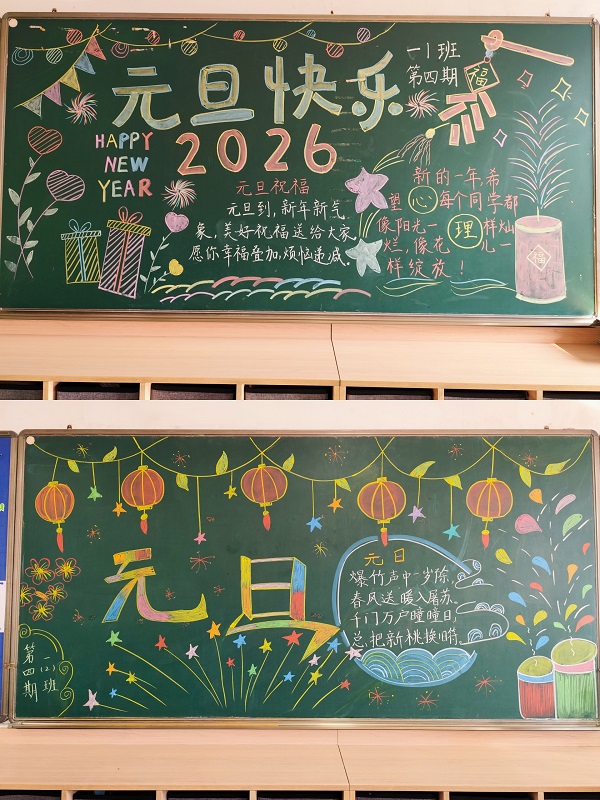 元旦快乐
一1班
第四期
福
HAPPY
NEW
YEAR
2026
元旦祝福
元旦到，新年新气
象，美好祝福送给大家
愿你幸福叠加，烦恼递减。
新的一年，希
望心每个同学都
像阳光一理样灿
烂，像花儿一
样绽放！
福
元旦
元日
爆竹声中一岁除，
春风送暖入屠苏。
千门万户曈曈日，
总把新桃换旧符。
一（2）班
第四期